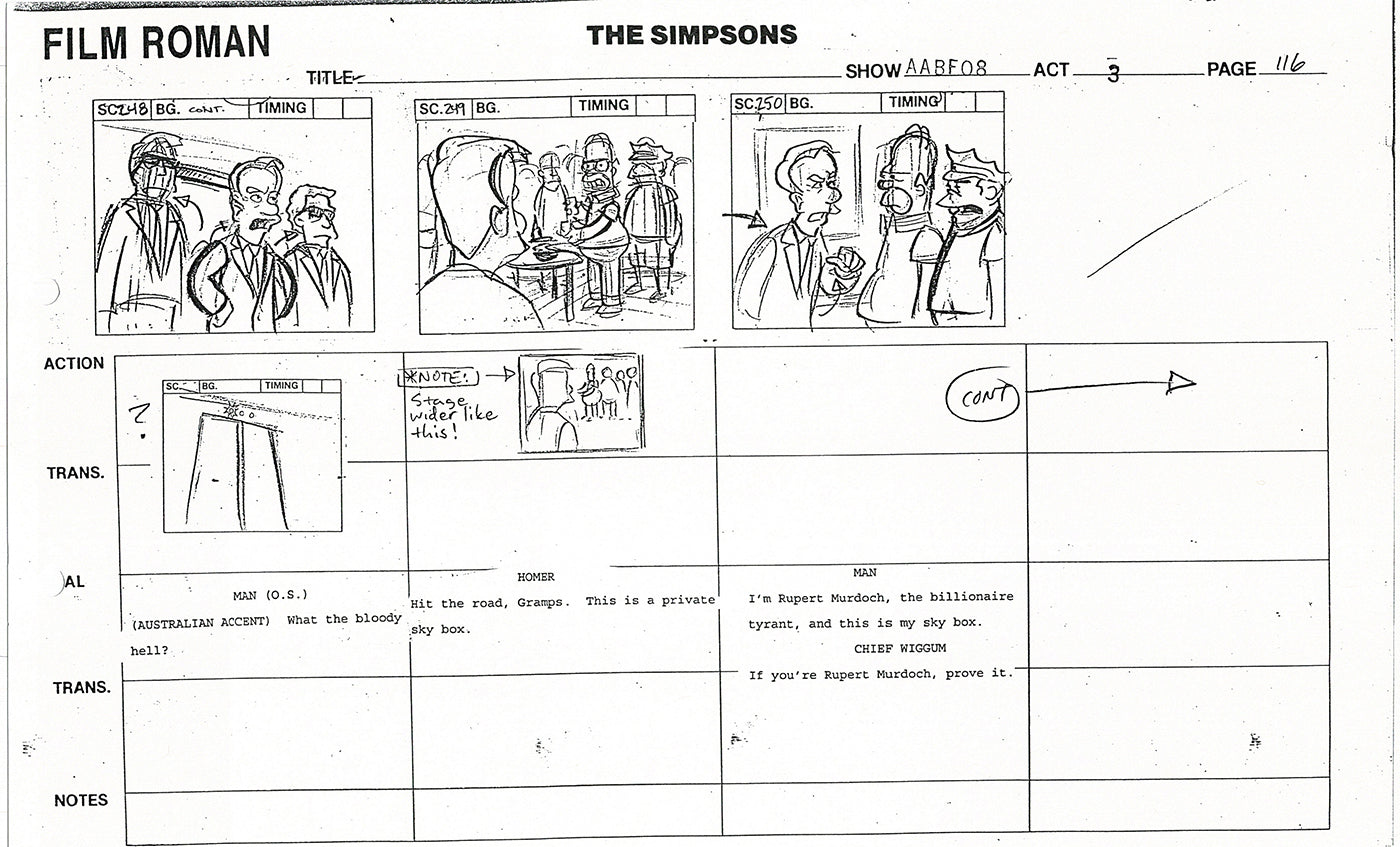 FILM ROMAN
THE SIMPSONS
TITLE
SHOW AABF08 ACT 3 PAGE 116
SC.248 BG. CONT. TIMING
SC.249 BG. TIMING
SC.250 BG. TIMING
ACTION
?
SC. BG. TIMING
*NOTE:
Stage
wider like
this!
CONT
TRANS.
AL
MAN (O.S.)
(AUSTRALIAN ACCENT) What the bloody
hell?
HOMER
Hit the road, Gramps. This is a private
sky box.
MAN
I'm Rupert Murdoch, the billionaire
tyrant, and this is my sky box.
CHIEF WIGGUM
If you're Rupert Murdoch, prove it.
TRANS.
NOTES